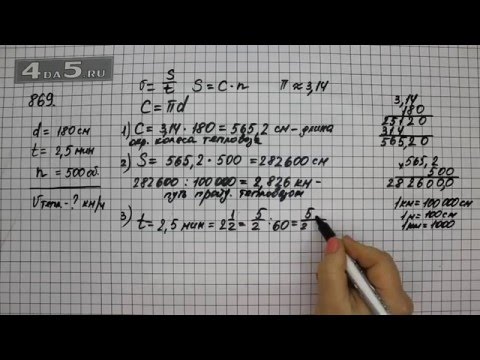 4DA5.RU
869.
d = 180 см
t = 2,5 мин
n = 500 об.
Vтепл - ? км/ч
v = S/t   S = C · n   π ≈ 3,14
C = πd
1) C = 3,14 · 180 = 565,2 см - длина
окр. колеса тепловоза
2) S = 565,2 · 500 = 282600 см
282600 : 100000 = 2,826 км -
путь пройд. тепловозом
3) t = 2,5 мин = 2 1/2 = 5/2 : 60 = 5/2
3,14
180
25120
314
565,20
× 565,2
500
282600,0
1 км = 100 000 см
1 м = 100 см
1 км = 1000